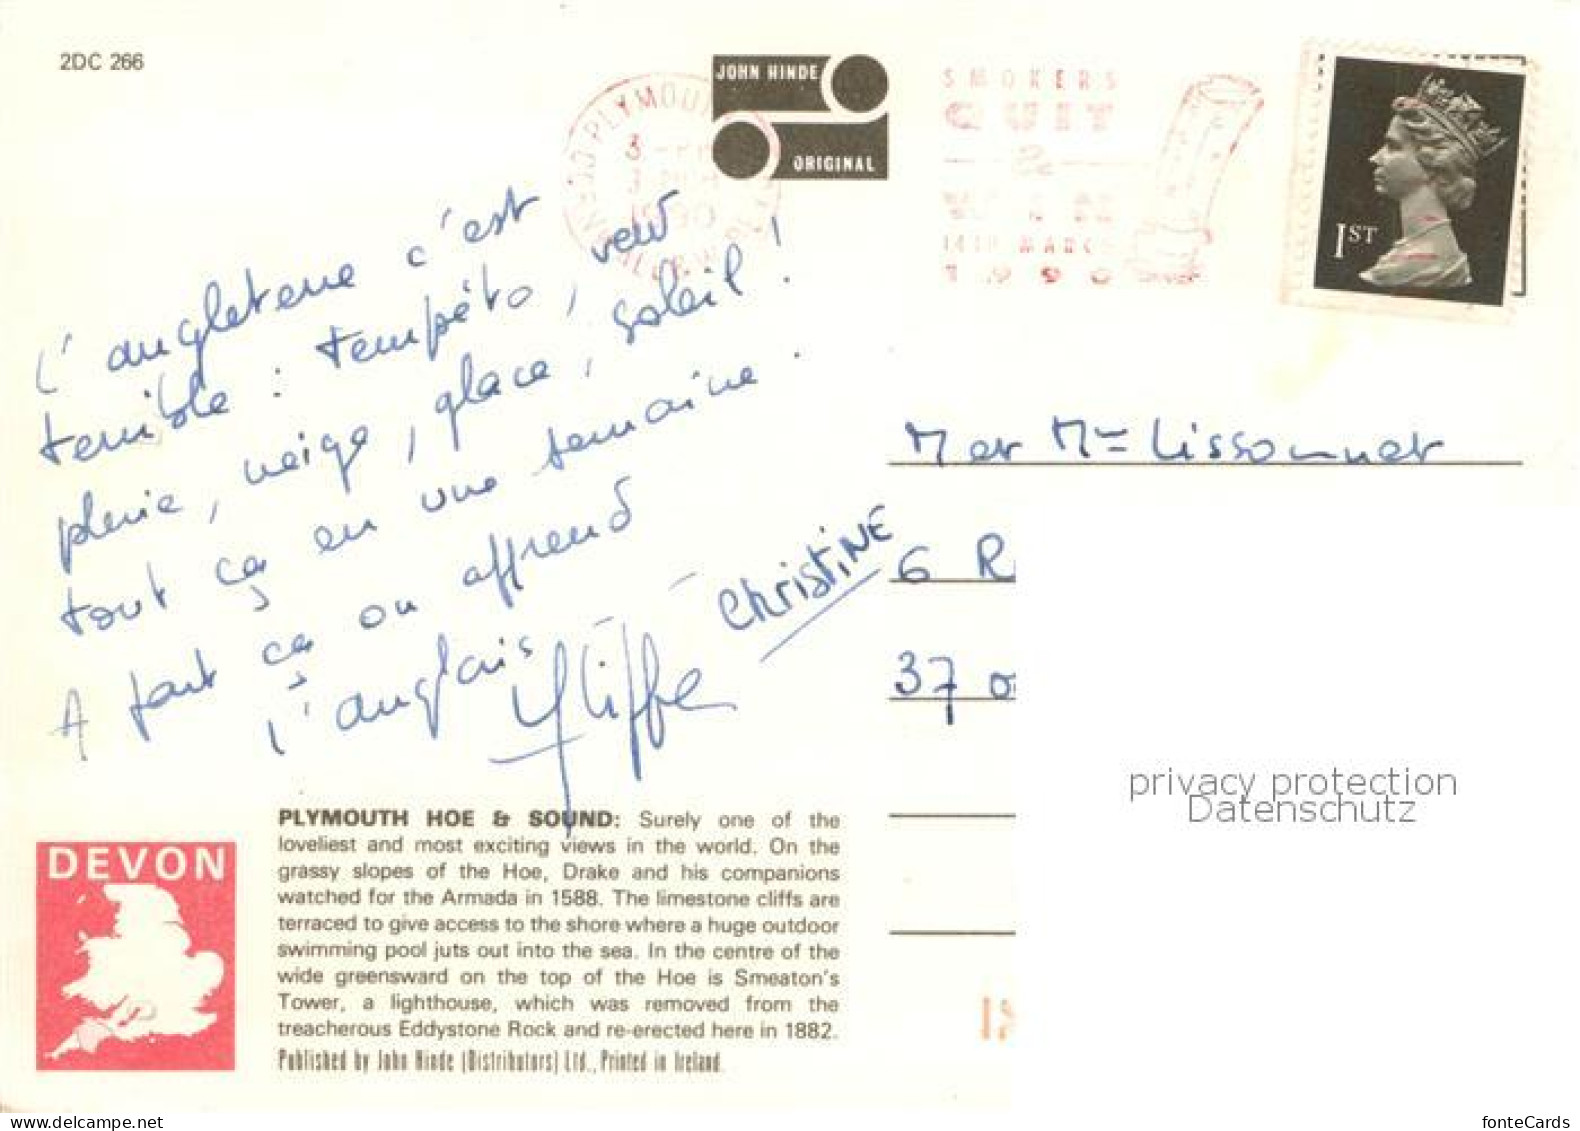 2DC 266
JOHN HINDE
ORIGINAL
PLYMOU
3
1990
SMOKERS
QUIT
&
WIN
14TH MARCH
1990
1ST
L'angleterre c'est
terrible : tempéto, veut
pluie, neige, glace, soleil !
tout ça en une semaine.
A part ça on apprend
l'anglais
Christine
M et Mme Lissonnet
6 R
37 0
privacy protection
Datenschutz
DEVON
PLYMOUTH HOE & SOUND: Surely one of the
loveliest and most exciting views in the world. On the
grassy slopes of the Hoe, Drake and his companions
watched for the Armada in 1588. The limestone cliffs are
terraced to give access to the shore where a huge outdoor
swimming pool juts out into the sea. In the centre of the
wide greensward on the top of the Hoe is Smeaton's
Tower, a lighthouse, which was removed from the
treacherous Eddystone Rock and re-erected here in 1882.
Published by John Hinde (Distributors) Ltd., Printed in Ireland.
www.delcampe.net
fonteCards